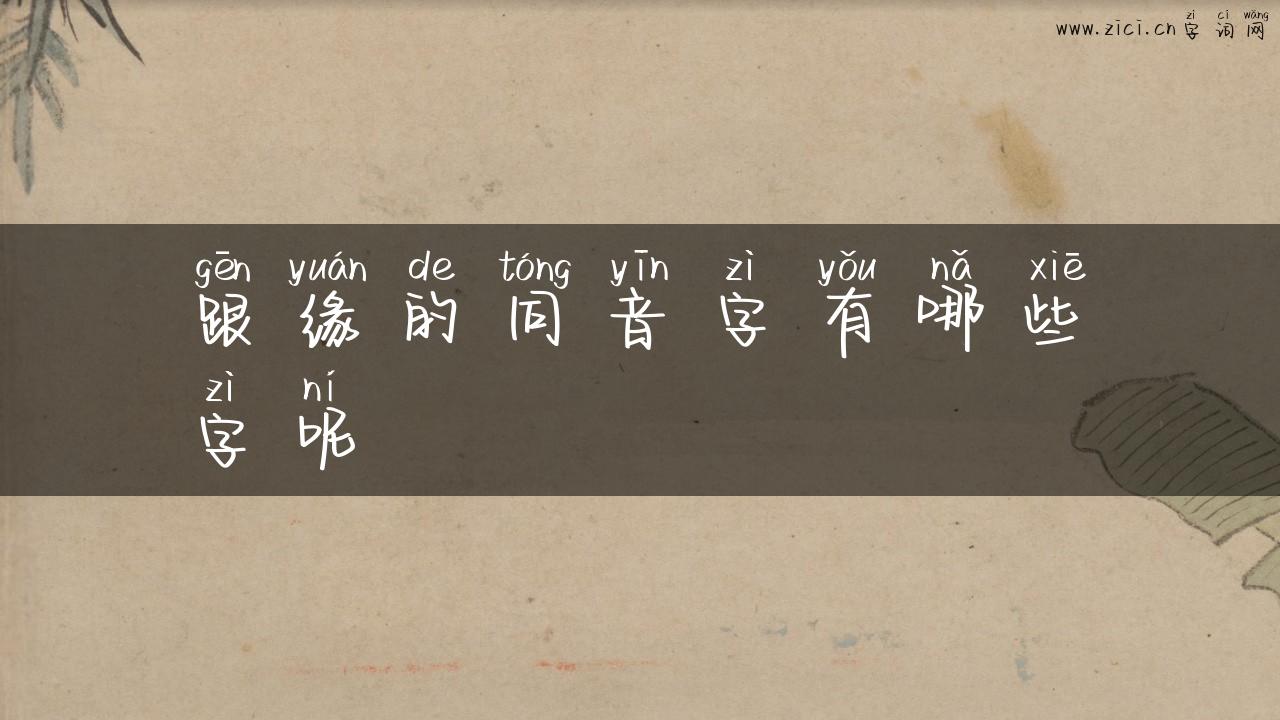 zì cí wǎng
www.zici.cn 字 词 网
gēn yuán de tóng yīn zì yǒu nǎ xiē
跟 缘 的 同 音 字 有 哪 些
zì ní
字 呢